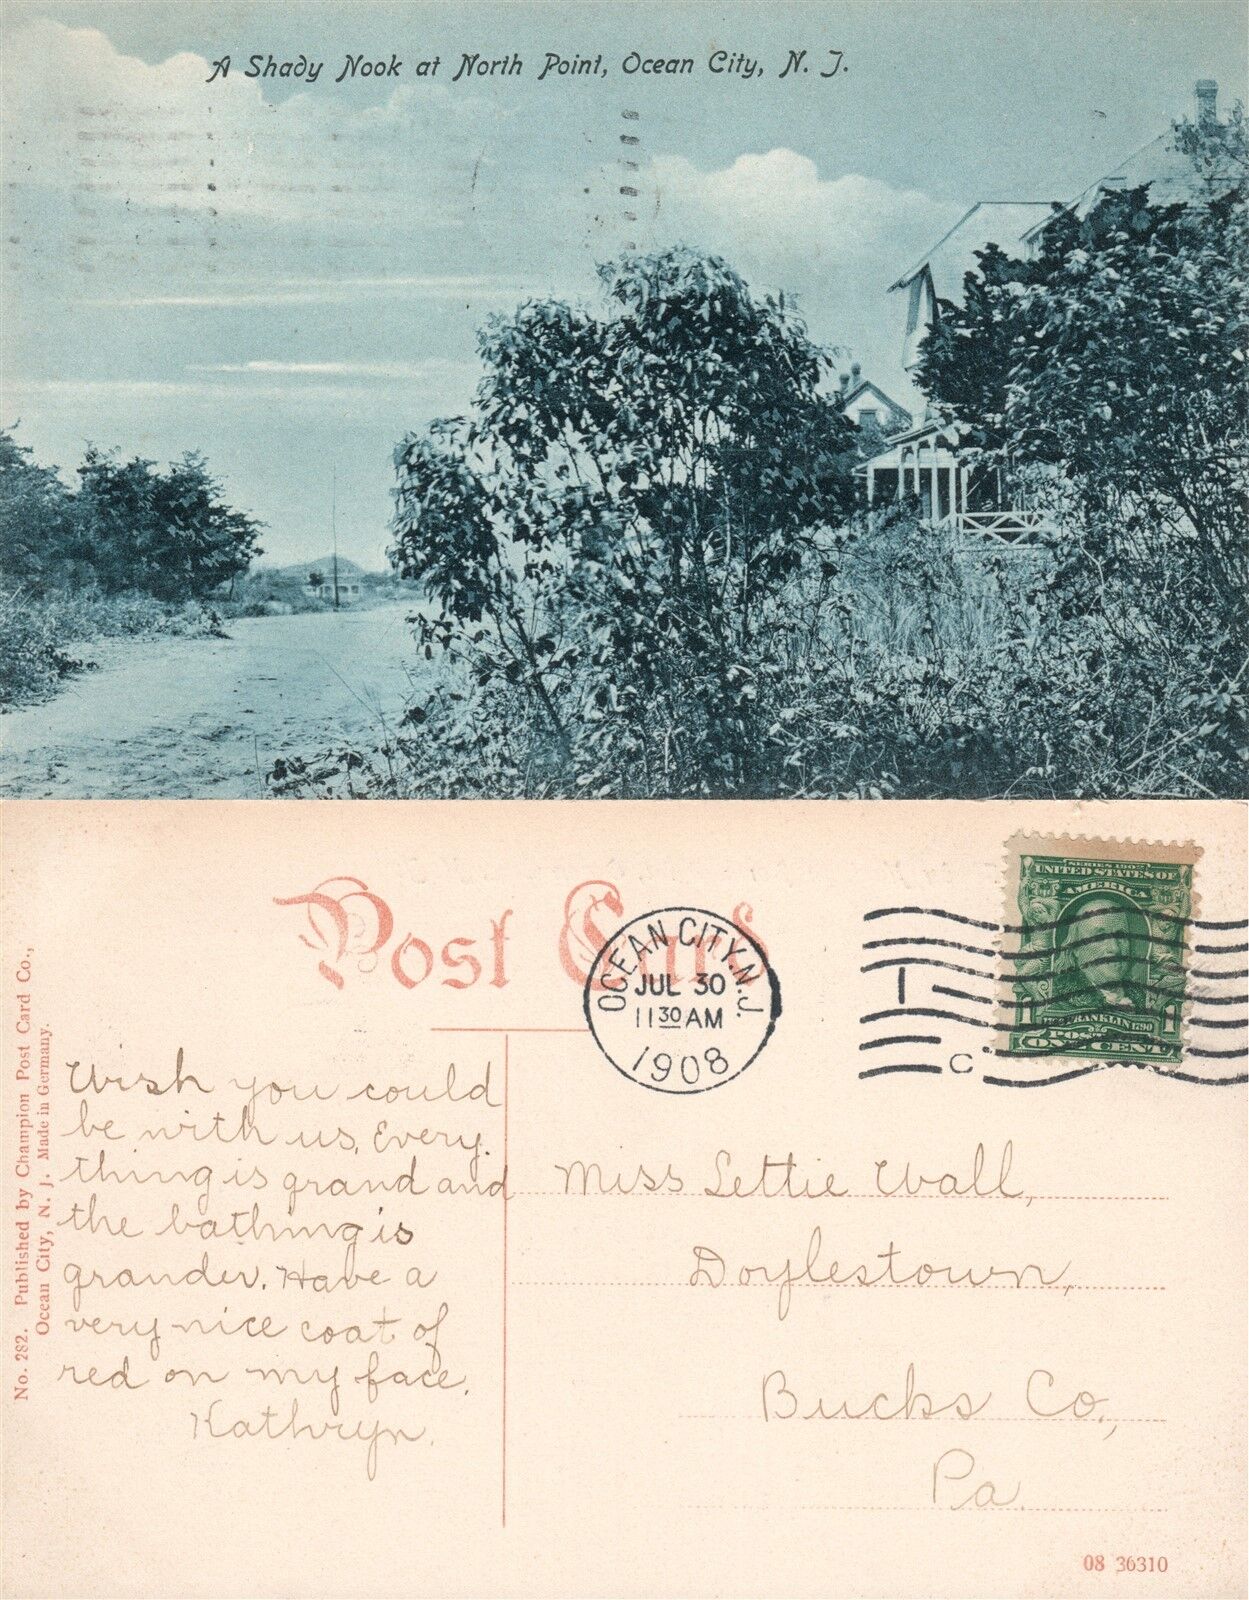 A Shady Nook at North Point, Ocean City, N. J.
Post Card
OCEAN CITY, N.J.
JUL 30
11 30 AM
1908
1
C
SERIES 1902
UNITED STATES OF
AMERICA
1706 FRANKLIN 1790
1 1
POSTAGE
ONE CENT
No. 282. Published by Champion Post Card Co.,
Ocean City, N. J. Made in Germany.
Wish you could
be with us. Every
thing is grand and
the bathing is
grander. Have a
very nice coat of
red on my face.
Kathryn.
Miss Lettie Wall,
Doylestown,
Bucks Co.,
Pa.
08 36310